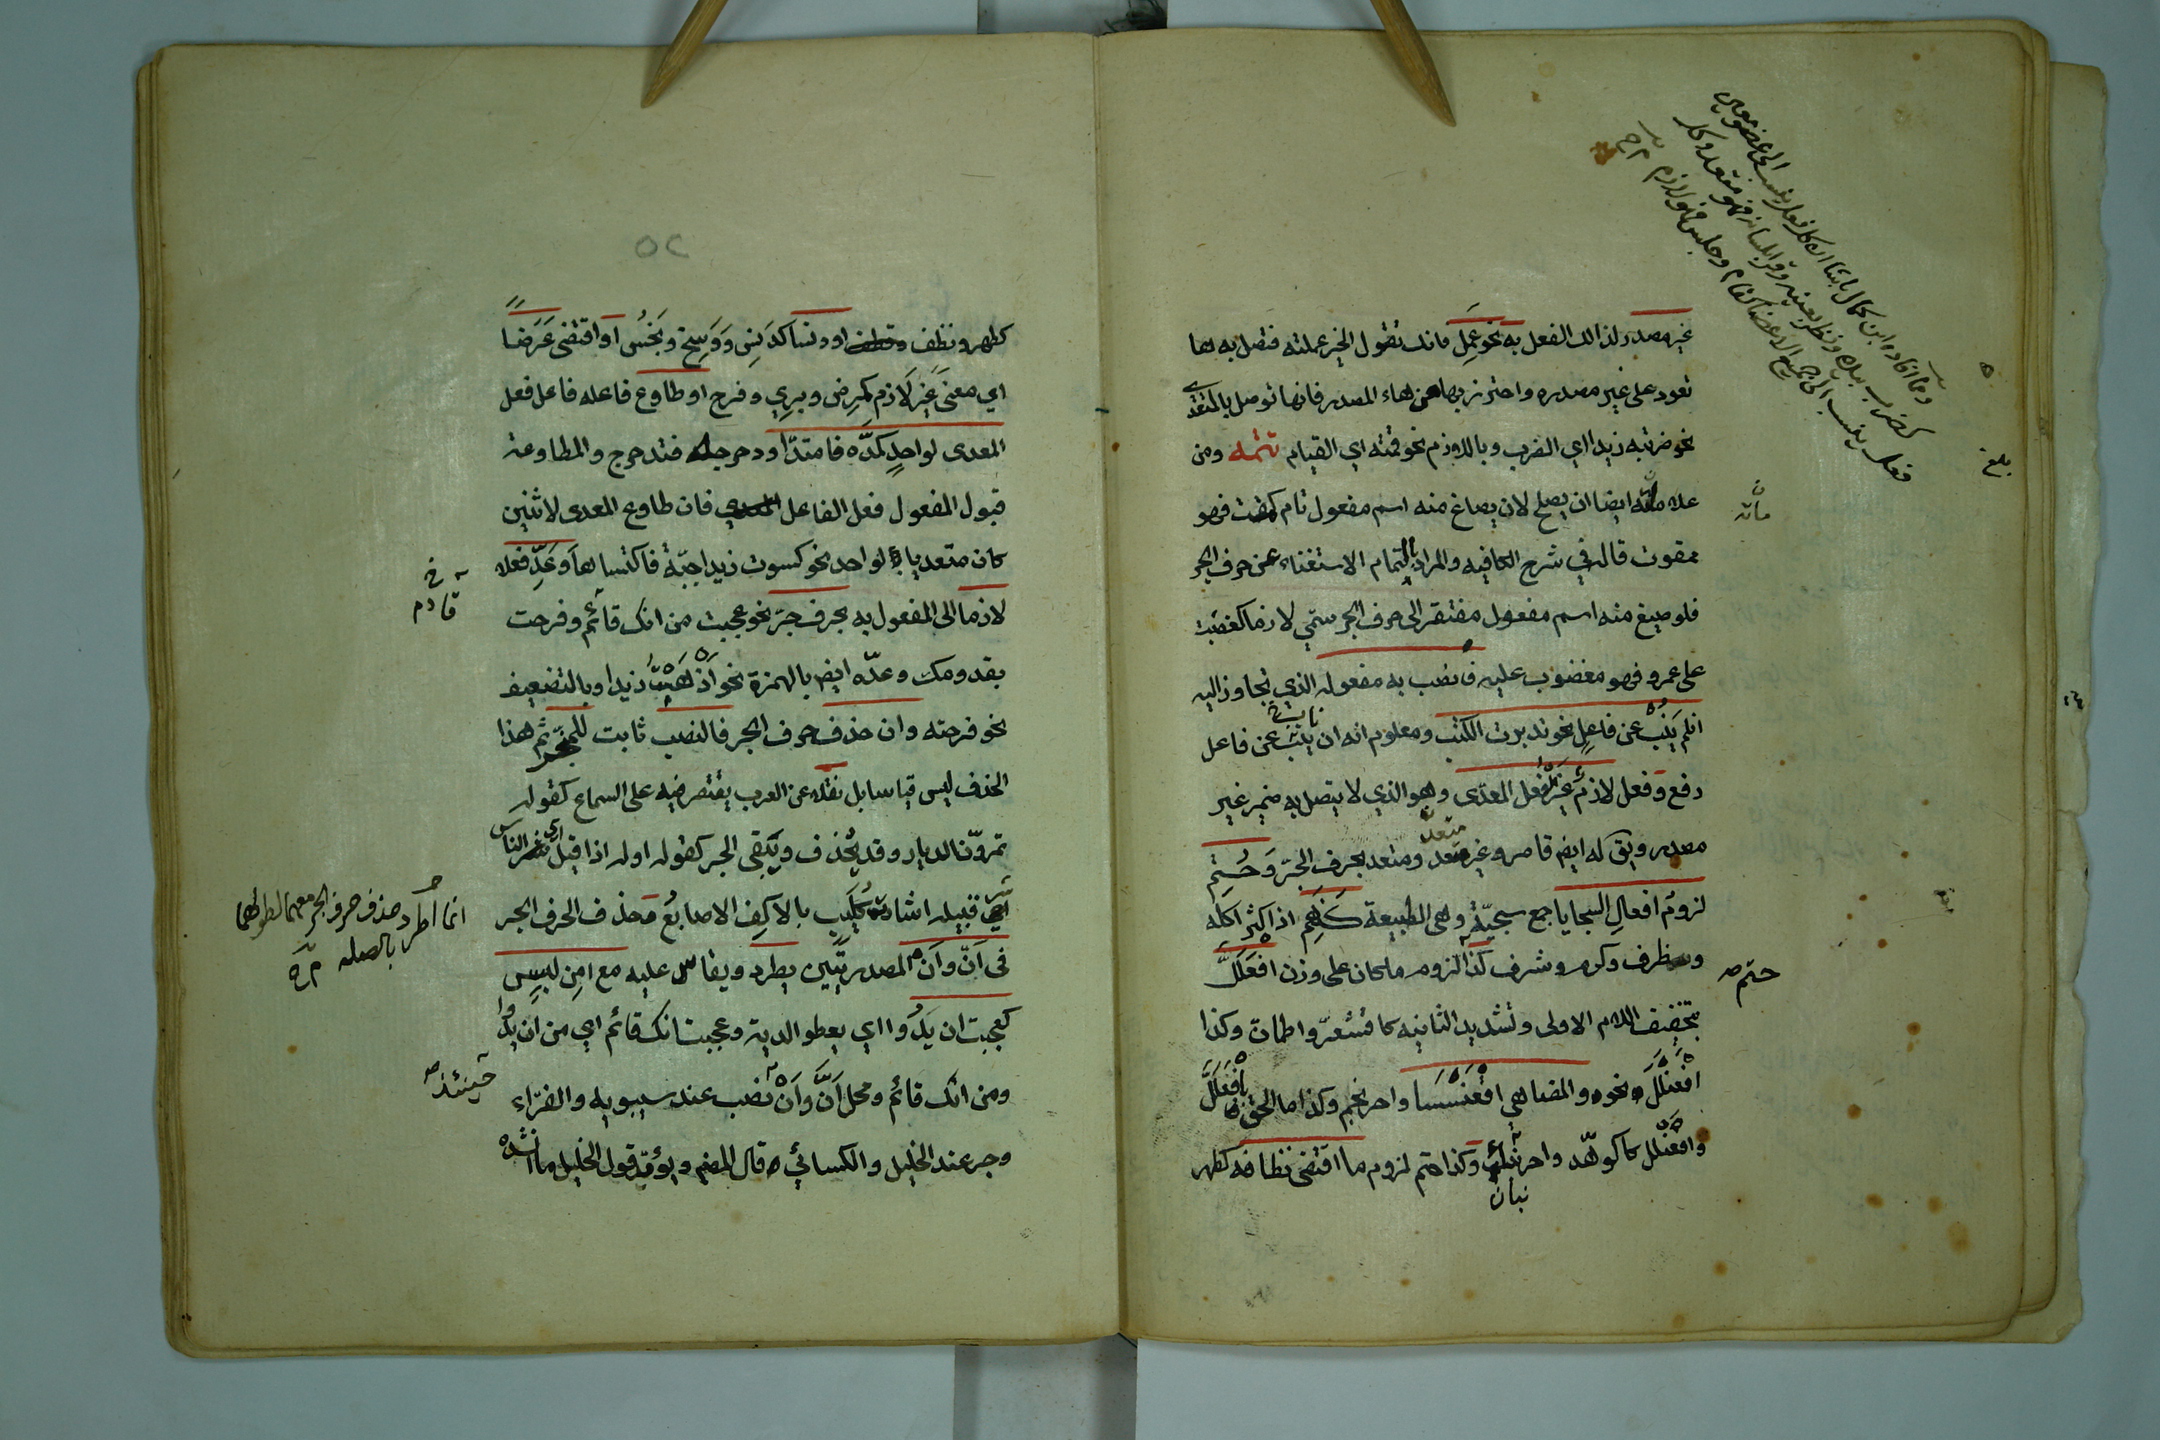 غير مصدر لذالك الفعل به نحو عمل فانك تقول الخير عملته فتصل به ها
تعود على غير مصدره واحترز بها عن هاء المصدر فانها توصل بالمتعدي
نحو ضربته زيدا اي الضرب وباللازم نحو قمته اي القيام تتمه ومن
علاماته ايضا ان يصلح لان يصاغ منه اسم مفعول تام كمقت فهو
ممقوت قاله في شرح الكافيه والمراد بالتمام الاستغناء عن حرف الجر
فلو صيغ منه اسم مفعول مفتقر الى حرف الجر سمي لازما كغضبت
على عمرو فهو مغضوب عليه فانصب به مفعوله الذي تجاوز اليه
ان لم ينب عن فاعل نحو تدبرت الكتب ومعلوم انه ان ينب عن فاعل
رفع وفعل لازم غير الفعل المعدى وهو الذي لا يتصل به ضمير غير
مصدر ويق له ايض قاصر وغير متعد ومتعد بحرف الجر وحتم
لزوم افعال السجايا جمع سجية وهي الطبيعة كنهم اذا كثر اكله
وظرف وكرم وشرف كذا لزوم ما كان على وزن افعلل
بتخفيف اللام الاولى وتشديد الثانيه كاقشعر واطمان وكذا
افعنلل ونحوه والمضاهي اقعنسسا واحرنجم وكذا ما الحق بافعلل
وافعنلل كاكوهد واحرنبى وكذا حتم لزوم ما اقتضى نظافة كطهر
مانه
حتم
بلغ
كطهر ونظف او دنسا كدنس ووسخ ونجس او اقتضى عرضا
اي معنى غير لازم كمرض وبري وفرح او طاوع فاعله فاعل فعل
المعدى لواحد كمده فامتدا ودحرجه فتدحرج والمطاوعة
قبول المفعول فعل الفاعل فان طاوع المعدى لاثنين
كان متعديا لواحد نحو كسوت زيدا جبة فاكتساها وعد فعلا
لازما الى المفعول به بحرف جر نحو عجبت من انك قائم وفرحت
بقدومك وعده ايض بالهمزة نحو اذهبت زيدا وبالتضعيف
نحو فرحته وان حذف حرف الجر فالنصب ثابت للمنجر ثم هذا
الحذف ليس قياسا بل نقلا عن العرب يقتصر فيه على السماع كقوله
تمرون الديار وقد يحذف ويبقى الجر كقوله اوله اذا قيل اي الناس
شر قبيله اشارت كليب بالاكف الاصابع وحذف الحرف الجر
في ان وان المصدريتين يطرد ويقاس عليه مع امن لبس
كعجبت ان يدوا اي يعطوا الدية وعجبت انك قائم اي من ان يدوا
ومن انك قائم ومحل ان وان نصب عند سيبويه والفراء
وجر عند الخليل والكسائي قال المصنم ويؤيد قول الخليل ما انشده
قادم
انما اطرد حذف حرف الجر معهما لطولهما
بالصله
حينئذ